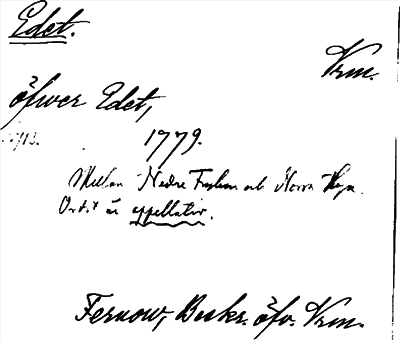 Edet.
Vrm.
öfwer Edet,
1779.
Mellan Nedre och Norra
Ordet är appellativ.
Fernow, Beskr. öfv. Vrm.